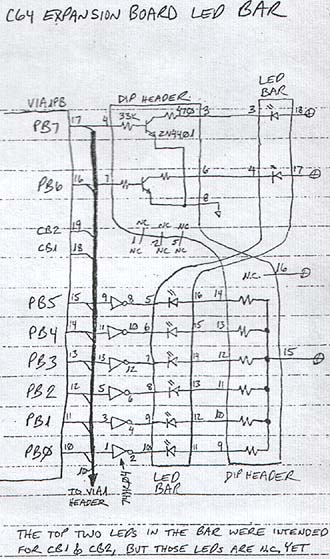 C64 EXPANSION BOARD LED BAR
LED
BAR
VIA1 PB
DIP HEADER
470
33K
PB7 17 4 3 3 18
2N4401
PB6 16 7 6 4 17
8
CB2 19
CB1 18
1 2 5
NC NC NC
N.C. 16
PB5 15 9 8 5 16 14
PB4 14 11 10 6 15 13
15
PB3 13 13 12 7 14 12
PB2 12 5 6 8 13 11
PB1 11 3 4 9 12 10
PB0 10 1 2 10 11 9
TO VIA1
HEADER
LED
BAR
DIP HEADER
THE TOP TWO LEDS IN THE BAR WERE INTENDED
FOR CB1 & CB2, BUT THOSE LEDS ARE N.C. YET